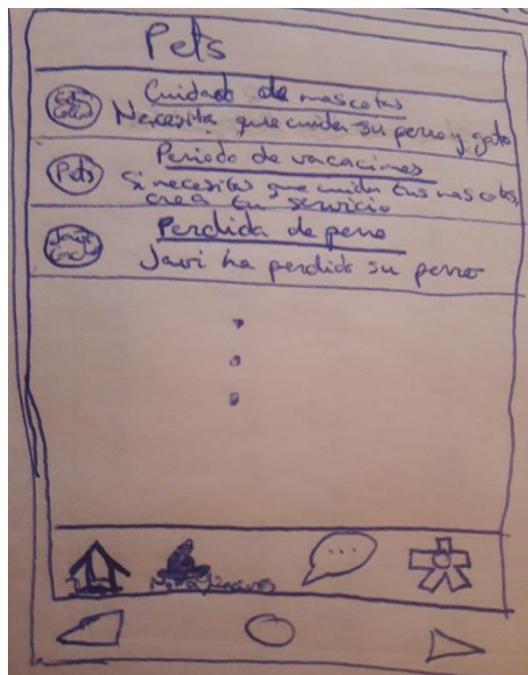 Pets
Cuidado de mascotas
Necesita que cuiden su perro y gato
Pets
Periodo de vacaciones
Si necesitas que cuiden tus mascotas,
crea tu servicio
Perdida de perro
Javi ha perdido su perro